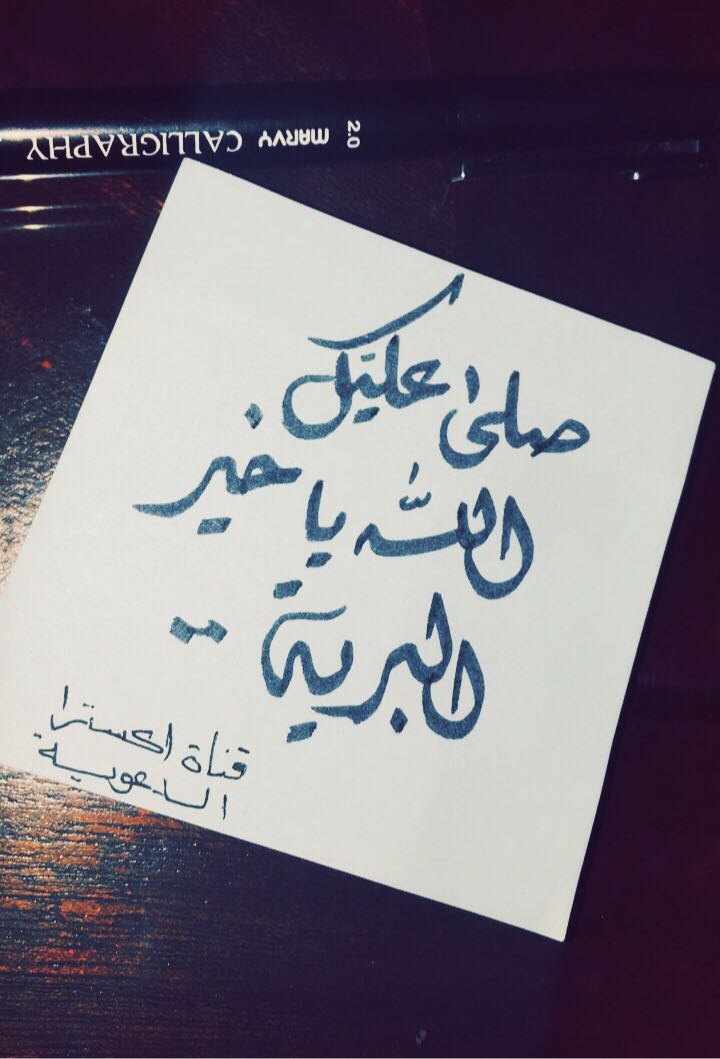 CALLIGRAPHY MARVY 2.0
صلى عليك
الله يا خير
البرية ..
قناة اكسترا
الدعوية